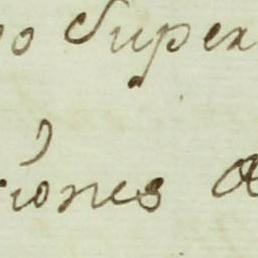 o Super
iones